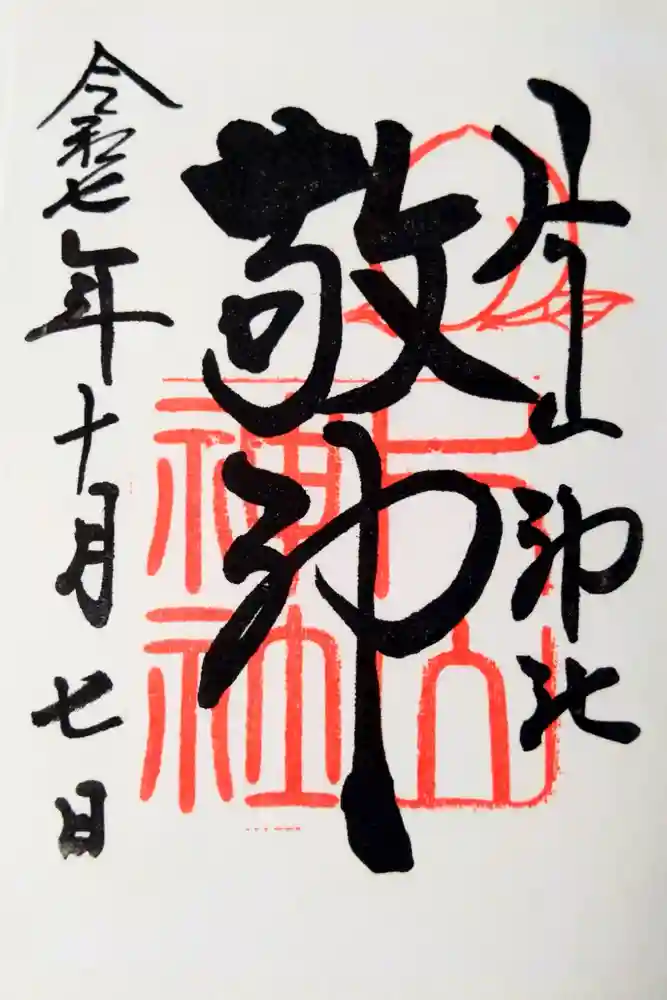 片山神社
敬神
令和七年十月七日
片山神社